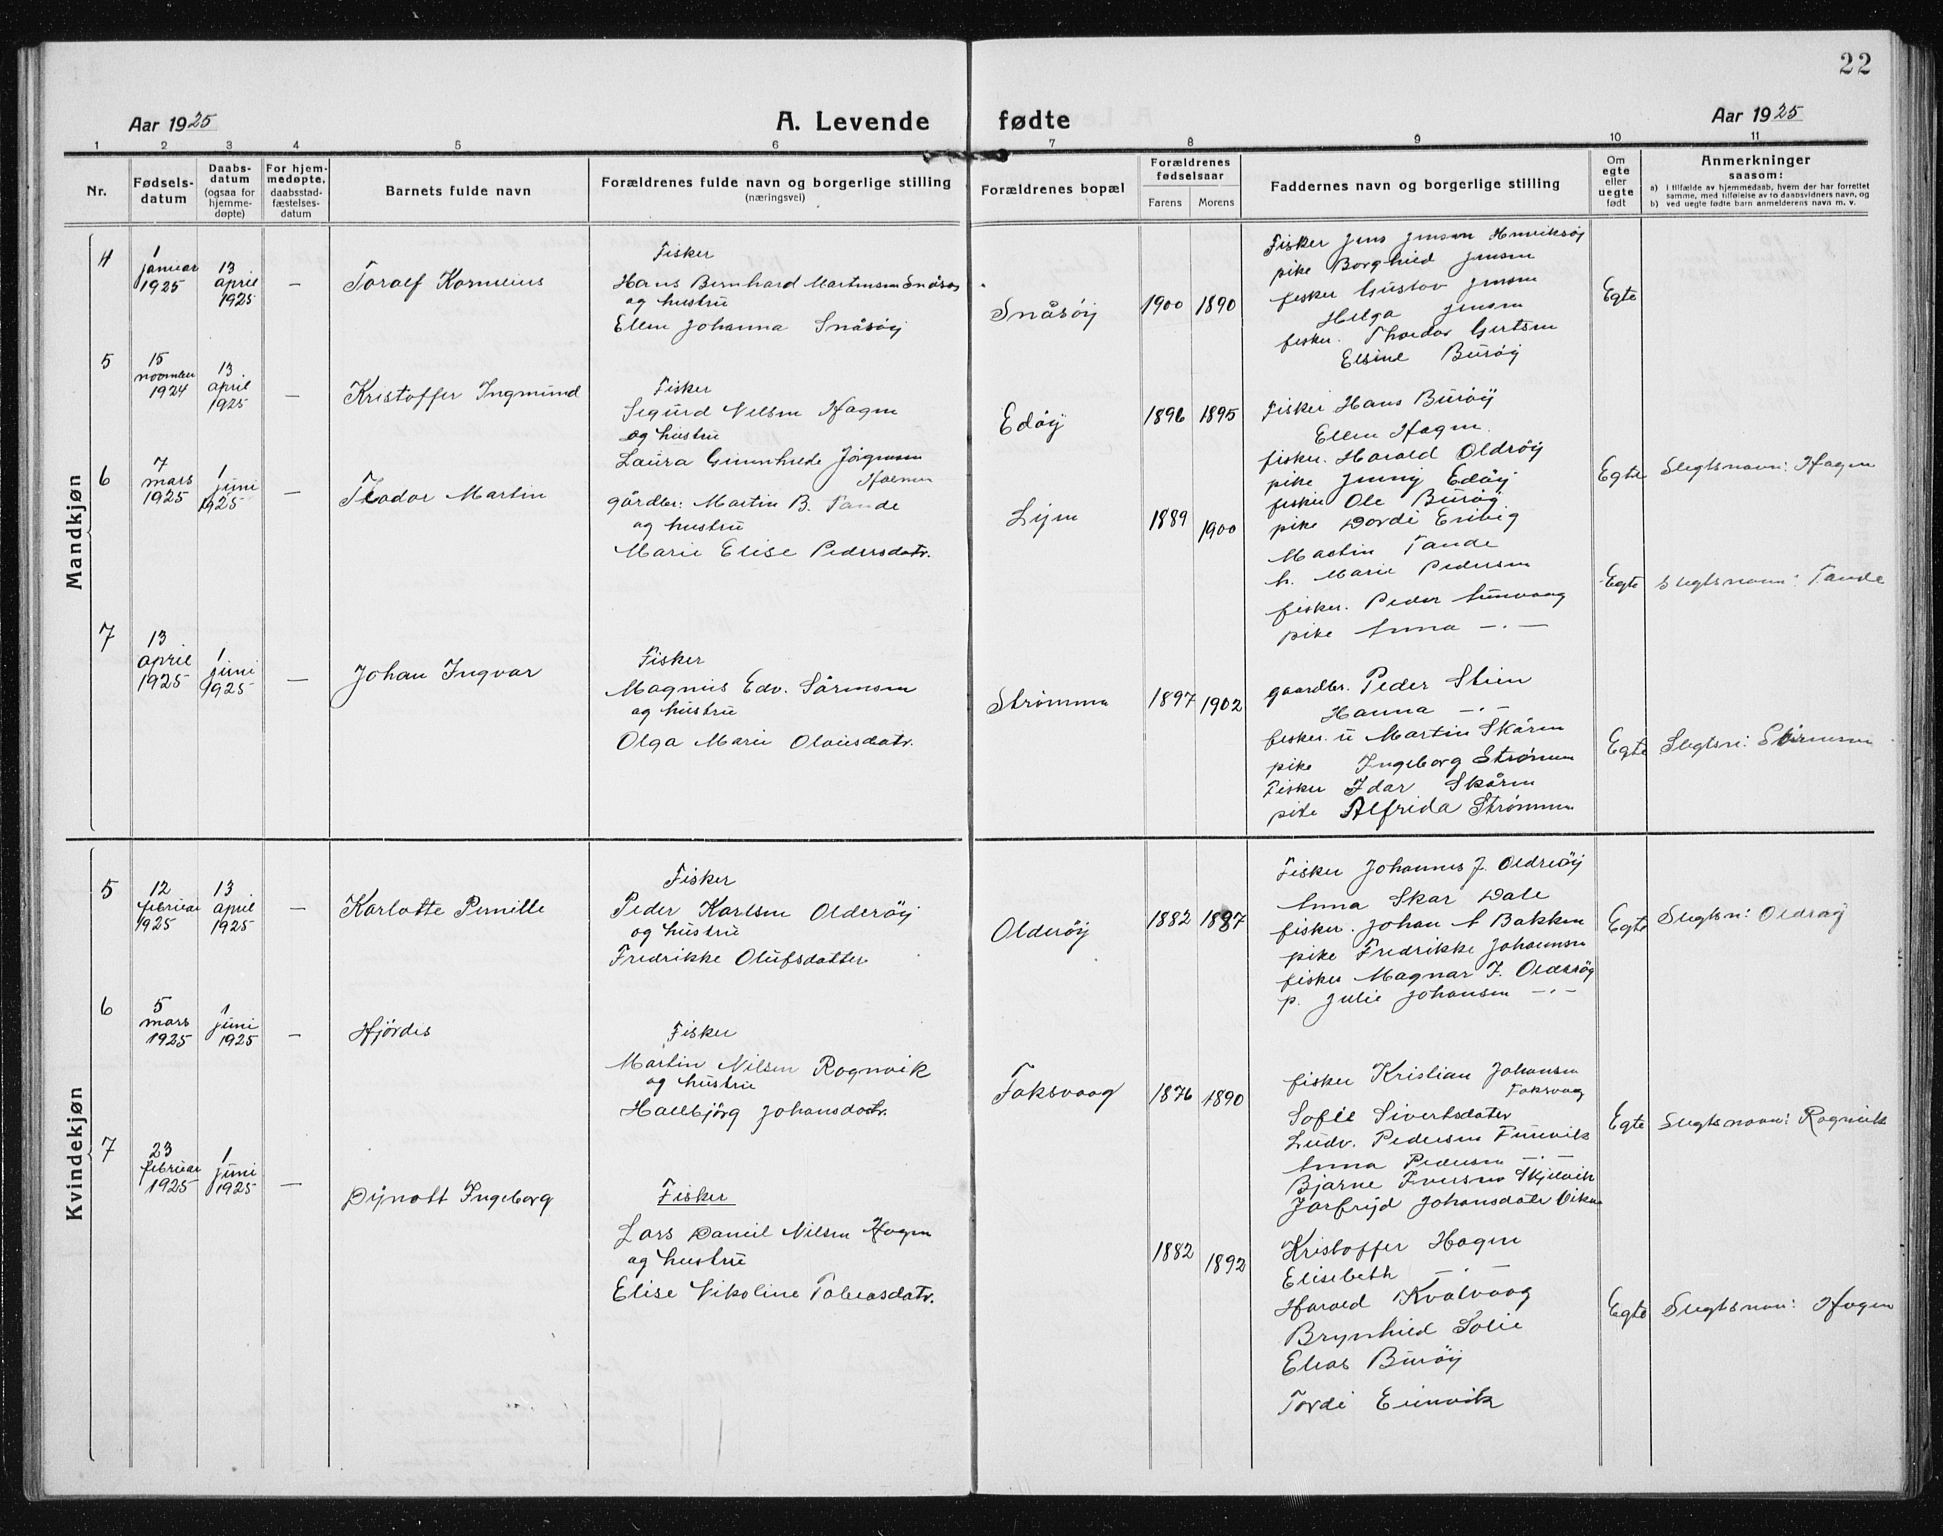 22
Aar 1925
A. Levende fødte
Aar 1925
1 2 3 4 5 6 7 8 9 10 11
Nr.
Fødsels-
datum
Daabs-
datum
(ogsaa for
hjemme-
døpte)
For hjem-
medøpte,
daabsstad-
fæstelses-
datum
Barnets fulde navn
Forældrenes fulde navn og borgerlige stilling
(næringsvei)
Forældrenes bopæl
Forældrenes
fødselsaar
Farens Morens
Faddernes navn og borgerlige stilling
Om
egte
eller
uegte
født
Anmerkninger
saasom:
a) i tilfælde av hjemmedaab, hvem der har forrettet
samme, med tilføielse av to daabsvidners navn, og
b) ved uegte fødte barn anmelderens navn m. v.
Mandkjøn
4
1
januar
1925
13
april
1925
—
Toralf Kornelius
Fisker
Hans Bernhard Martinsen Snåsøy
og hustru
Ellen Johanna Snåsøy
Snåsøy
1900 1890
Fisker Jens Jensen Henriksøy
pike Borghild Jensen
fisker Gustav Jensen
Helga Jensen
fisker. Thordar Gertsen
Elsine Burøy
Egte
5
15
november
1924
13
april
1925
—
Kristoffer Ingmund
Fisker
Sigurd Nilsen Hagen
og hustru
Laura Gunnhilde Jørgensen
Holmen
Edøy
1896 1895
Fisker Hans Burøy
Ellen Hagen.
fisker. Harald Oldrøy
pike Jenny Edøy
fisker Ole Burøy
pike Dordi
Egte
Slegtsnavn: Hagen
6
7
mars
1925
1
juni
1925
—
Teodor Martin
gårdbr: Martin B. Tande
og hustru
Marie Elise Pedersdatr.
Lyen
1889 1900
Martin Tande
h. Marie Pedersen
fisker. Peder
pike Anna — . —
Egte
Slegtsnavn: Tande
7
13
april
1925
1
juni
1925
—
Johan Ingvar
Fisker
Magnus Edv. Sørensen
og hustru
Olga Marie Olausdatr.
Strømmen
1897 1902
gaardbr. Peder Stien
Hanna — . —
fisker. u Martin Skåren
pike Ingeborg Strømmen
Fisker Idar Skåren
pike Alfrida Strømmen
Egte
Slegtsn: Sørensen
Kvindekjøn
5
12
februar
1925
13
april
1925
—
Karlotte Pernille
Fisker
Peder Karlsen Olderøy
og hustru
Fredrikke Olufsdatter
Olderøy
1882 1887
Fisker Johannes J. Oldrøy
Anna Skar Dale
fisker. Johan A Bakken
pike Fredrikke Johannsen
fisker Magnar J. Olderøy
p. Julie Johansen — . —
Egte
Slegtsn: Oldrøy
6
5
mars
1925
1
juni
1925
—
Hjördis
Fisker
Martin Nilsen Rognvik
og hustru
Hallbjörg Johansdatr.
Taksvaag
1876 1890
fisker Kristian Johansen
Taksvaag
Sofie Sivertsdater
Ludv. Pedersen
Anna Pedersen — . —
Bjarne Iversen
Jarfryd Johansdater
Egte
Slegtsnavn: Rognvik
7
23
februar
1925
1
juni
1925
—
Dynott Ingeborg
Fisker
Lars Daniel Nilsen Hagen
og hustru
Elise Nikoline Tobiasdatr.
1882 1892
Kristoffer Hagen
Elisebeth — . —
Harald Kvalvaag
Brynhild Solie
Elias Burøy
Tordi
Egte
Slegtsnavn: Hagen